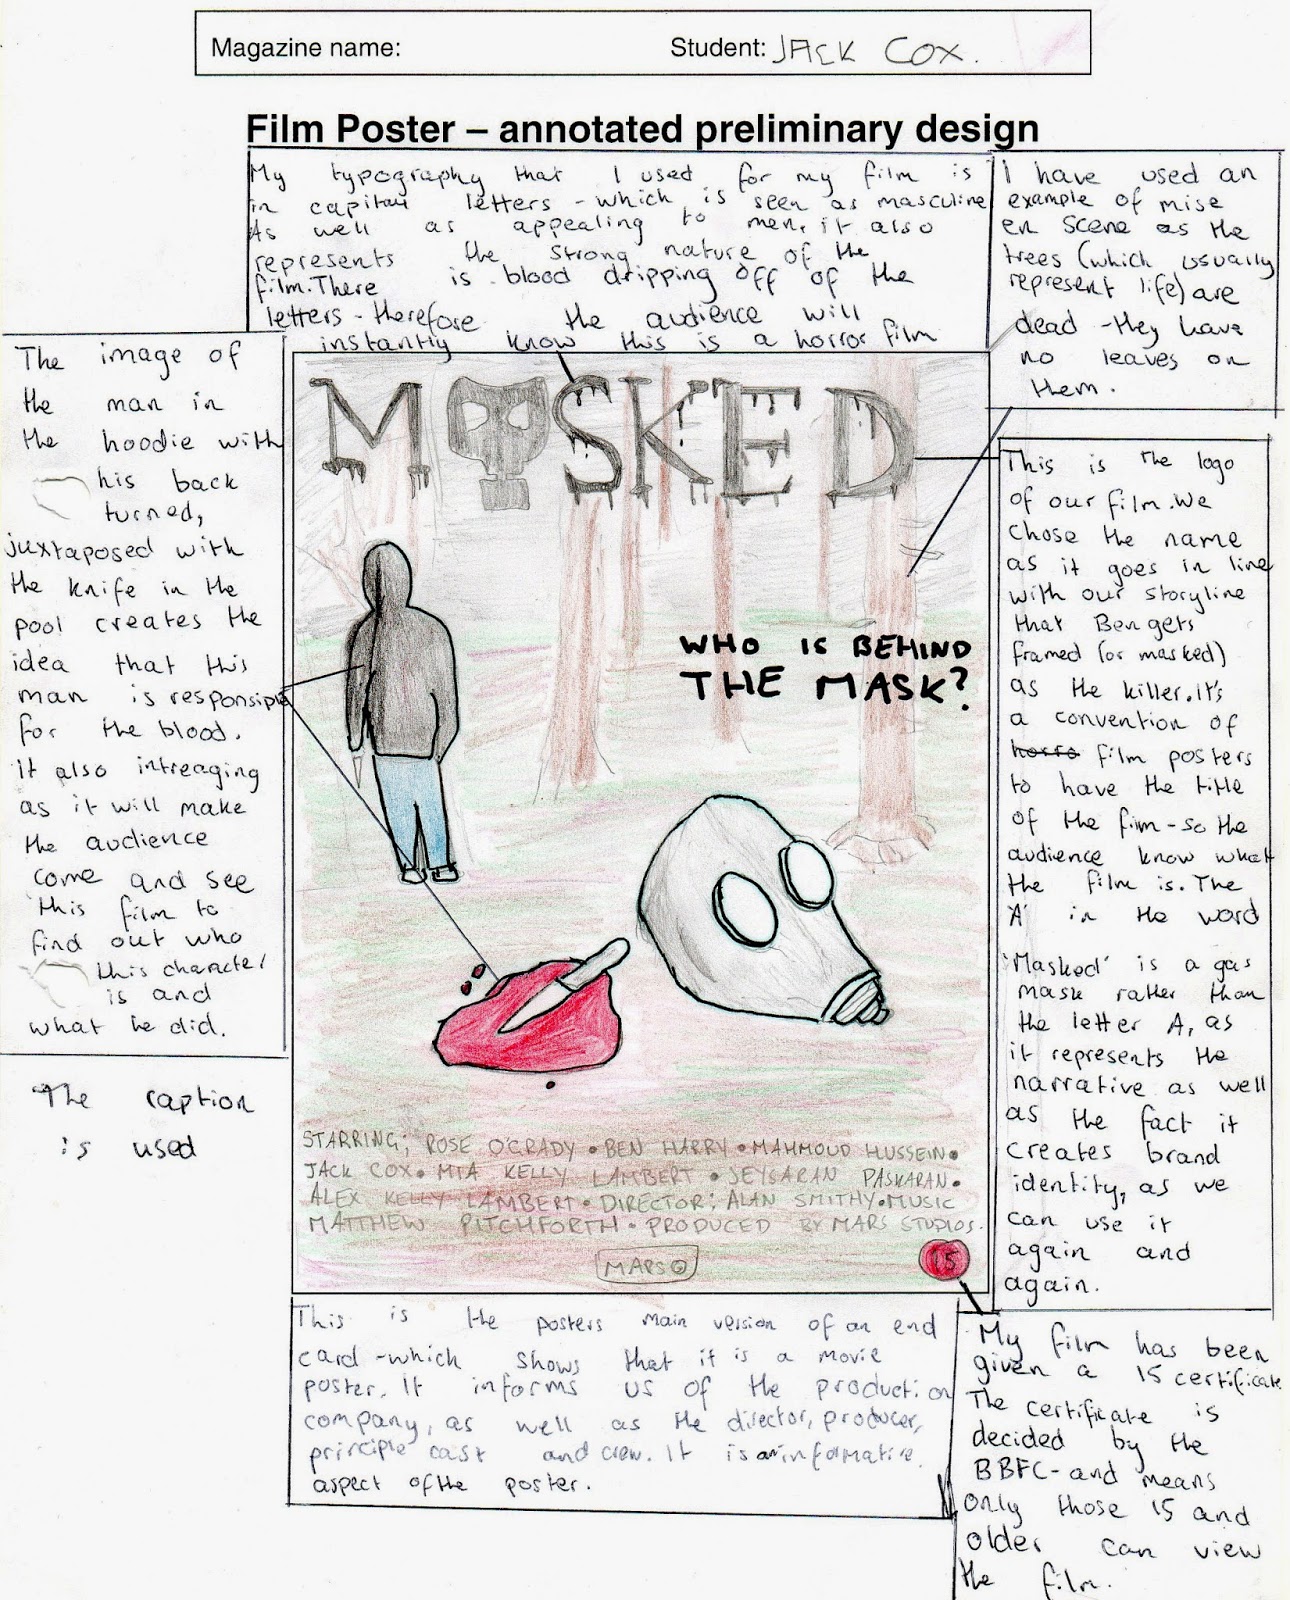 Magazine name:
Student: JACK COX.
Film Poster – annotated preliminary design
My typography that I used for my film is
in capital letters - which is seen as masculine
As well as appealing to men, it also
represents the strong nature of the
film. There is blood dripping off of the
letters - therefore the audience will
instantly know this is a horror film
I have used an
example of mise
en scene as the
trees (which usually
represent life) are
dead - they have
no leaves on
them.
The image of
the man in
the hoodie with
his back
turned,
juxtaposed with
the knife in the
pool creates the
idea that this
man is responsible
for the blood.
it also intreaging
as it will make
the audience
come and see
this film to
find out who
this character
is and
what he did.
The caption
is used
M SKED
WHO IS BEHIND
THE MASK?
STARRING; ROSE O'GRADY • BEN HARRY • MAHMOUD HUSSEIN •
JACK COX • MIA KELLY LAMBERT • JEYSARAN PASKARAN •
ALEX KELLY LAMBERT • DIRECTOR: ALAN SMITHY • MUSIC
MATTHEW PITCHFORTH • PRODUCED BY MARS STUDIOS.
MARS ©
15
This is the logo
of our film. We
chose the name
as it goes in line
with our storyline
that Ben gets
framed (or masked)
as the killer. It's
a convention of
horro film posters
to have the title
of the film - so the
audience know what
the film is. The
'A' in the word
'Masked' is a gas
mask rather than
the letter A, as
it represents the
narrative as well
as the fact it
creates brand
identity, as we
can use it
again and
again.
This is the posters main version of an end
card - which shows that it is a movie
poster. It informs us of the production
company, as well as the director, producer,
principle cast and crew. It is an informative
aspect of the poster.
My film has been
given a 15 certificate
The certificate is
decided by the
BBFC - and means
only those 15 and
older can view
the film.